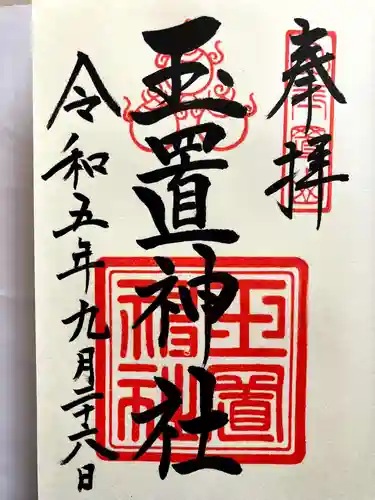 奉拝
玉置神社
令和五年九月二十六日
玉置
神社